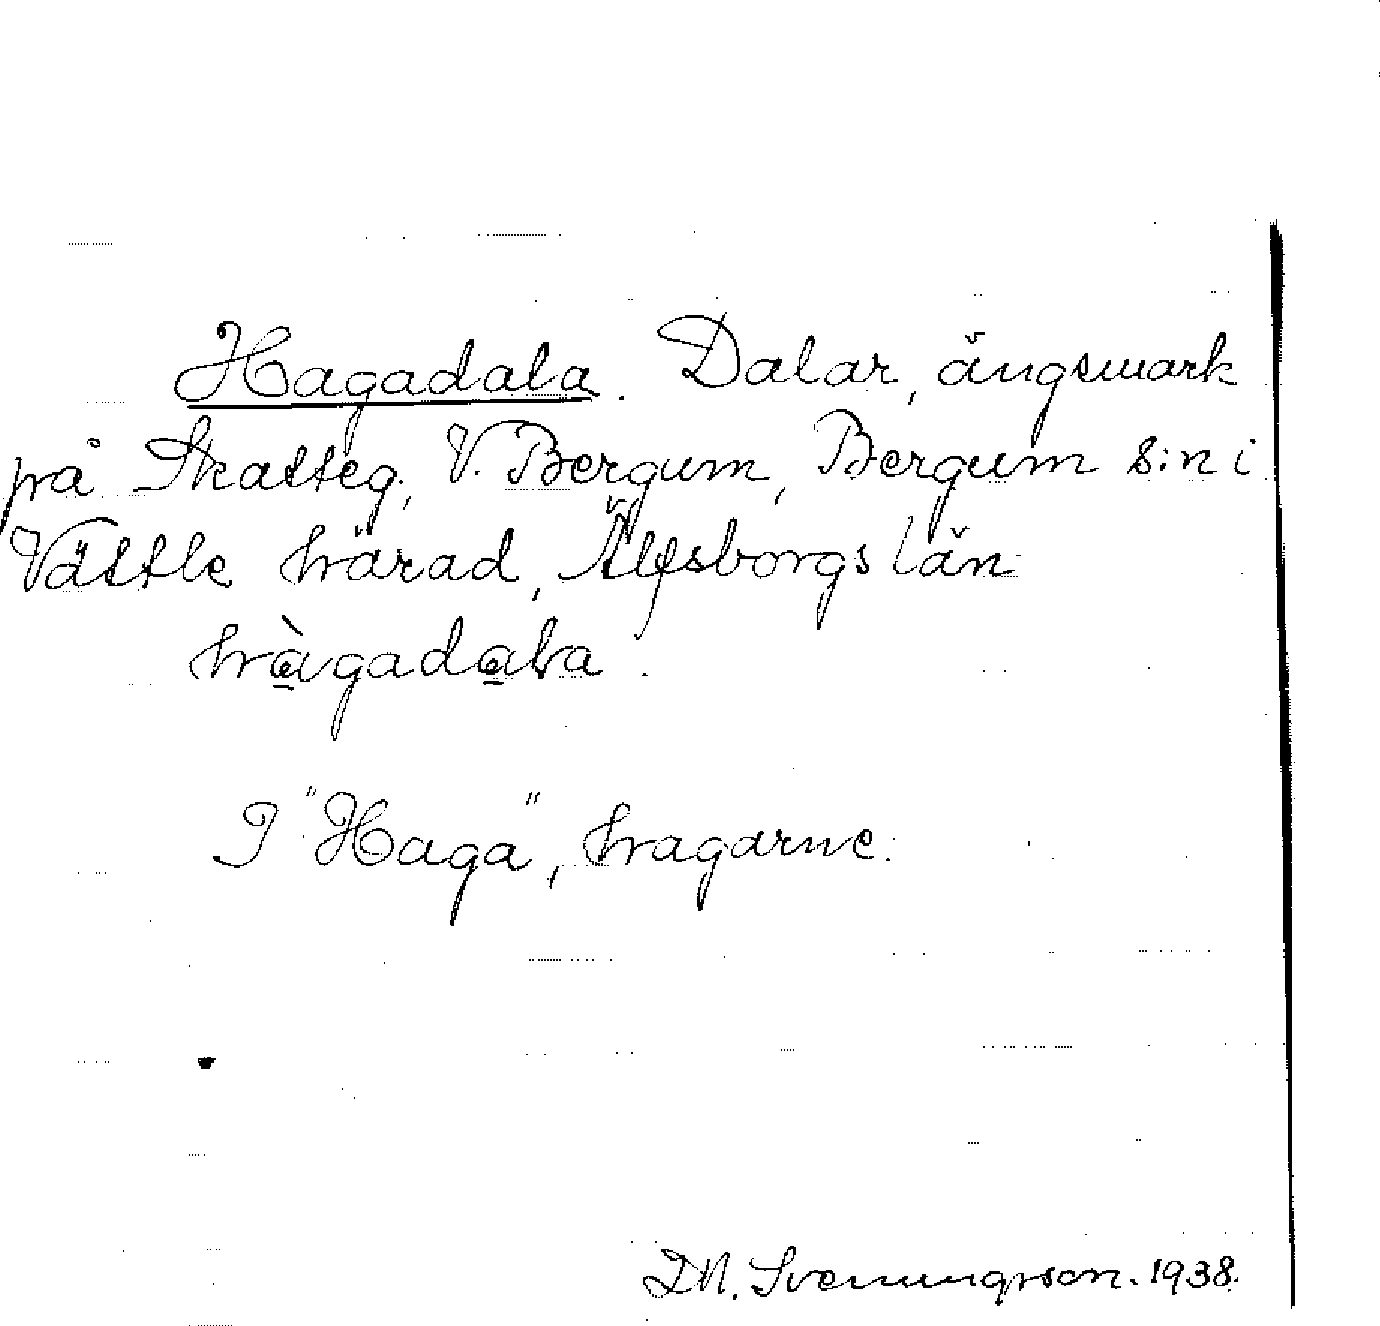 Hagadala. Dalar, ängsmark
på Skatteg., V. Bergum, Bergum s:n i
Vättle härad, Älfsborgs län.
hàgadala.
I "Haga", hagarne.
D.N. Svenungsson. 1938.